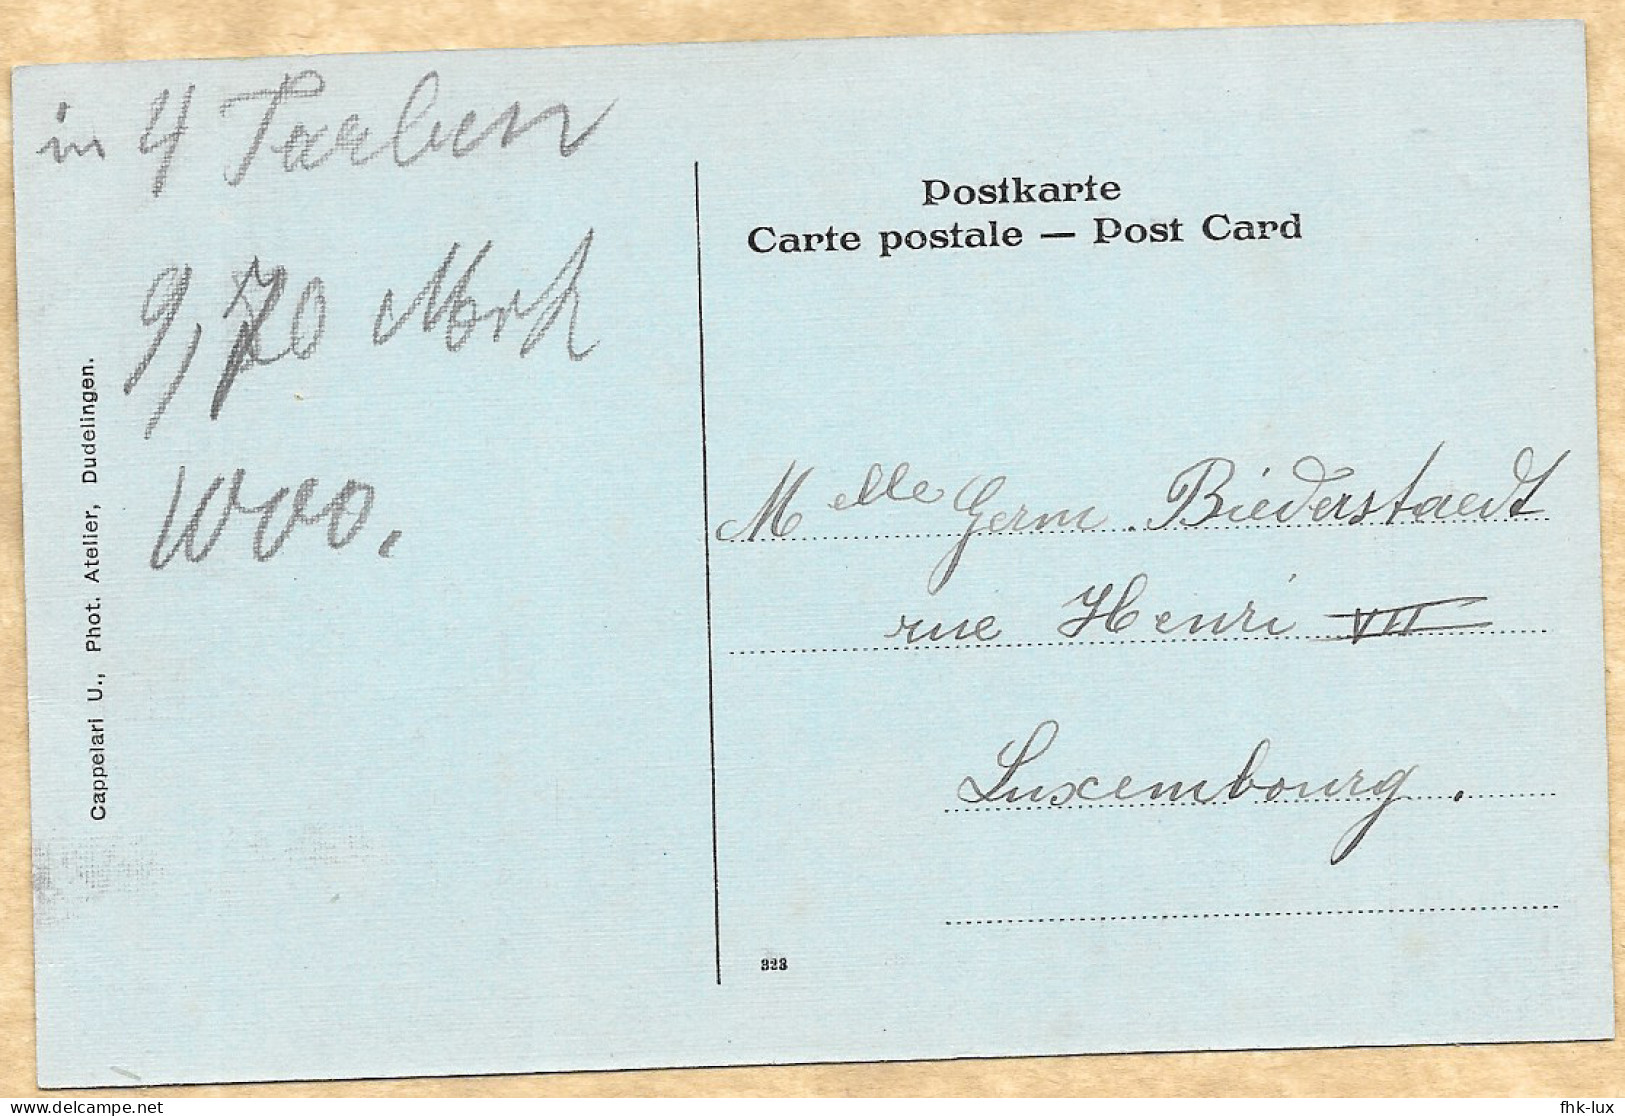 in 4 Farben
9,70 Mark
Woo.
Cappelari U., Phot. Atelier, Dudelingen.
Postkarte
Carte postale — Post Card
Melle Germ. Biederstaedt
rue Henri VII
Luxembourg.
323
delcampe.net
fhk-lux